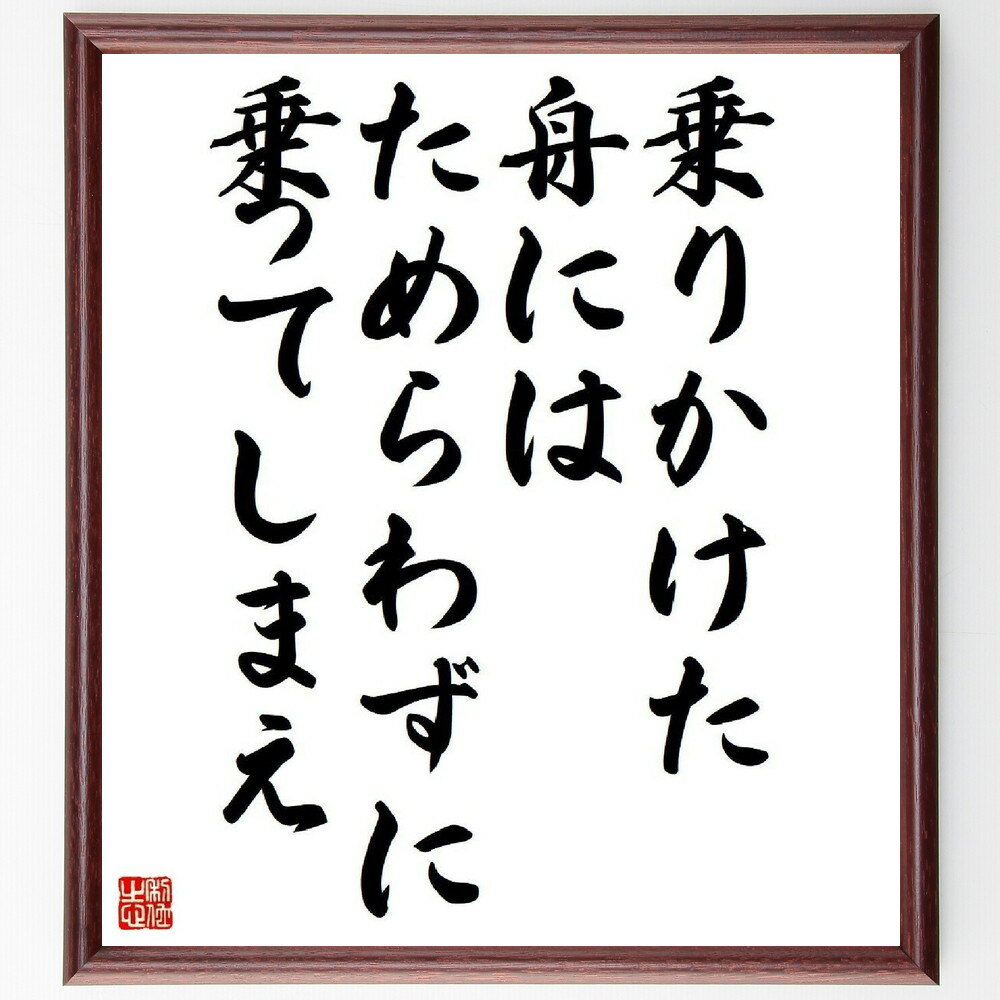 乗りかけた
舟には
ためらわずに
乗ってしまえ